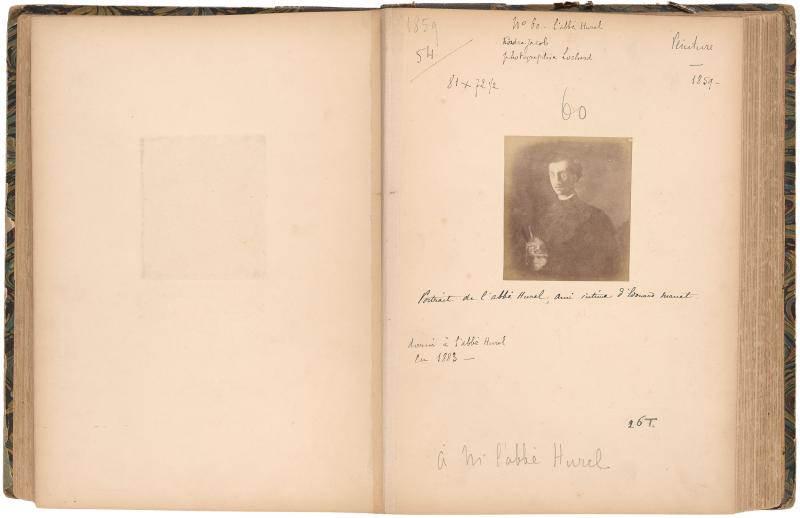 1859
54
No 60 - l'abbé Hurel
photographié Lochard
Peinture
1859-
81 x 72 1/2
60
Portrait de l'abbé Hurel, ami intime d'Édouard Manet
donné à l'abbé Hurel
en 1883 —
26T.
à Mr l'abbé Hurel